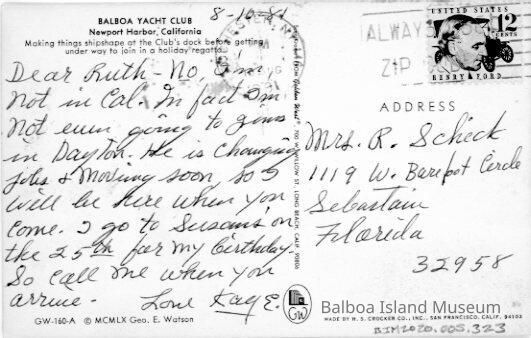 BALBOA YACHT CLUB
Newport Harbor, California
Making things shipshape at the Club's dock before getting
under way to join in a holiday regatta.
8-10-81
Dear Ruth - No, I'm
not in Cal. In fact I'm
not even going to Jims
in Dayton. He is changing
jobs & moving soon, so I
will be here when you
come. I go to Susans on
the 25th for my birthday.
So call me when you
arrive - Love Kay E.
GW-160-A © MCMLX Geo. E. Watson
WILLOW ST., LONG BEACH, CALIF. 90806
GW
UNITED STATES
12 CENTS
HENRY FORD
ALWAYS USE
ZIP
ADDRESS
Mrs. R. Scheck
1119 W. Barefoot Circle
Sebastain
Florida
32958
Balboa Island Museum
MADE BY H. S. CROCKER CO., INC., SAN FRANCISCO, CALIF. 94103
BIM2020.005.323